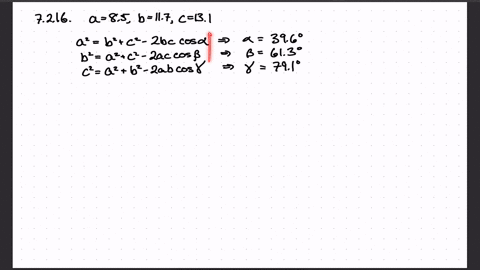 7.216. a=8.5, b=11.7, c=13.1
a² = b² + c² - 2bc cosα ⇒ α = 39.6°
b² = a² + c² - 2ac cosβ ⇒ β = 61.3°
c² = a² + b² - 2ab cosγ ⇒ γ = 79.1°